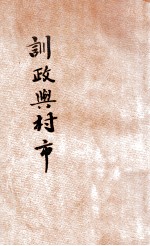 訓政與村市